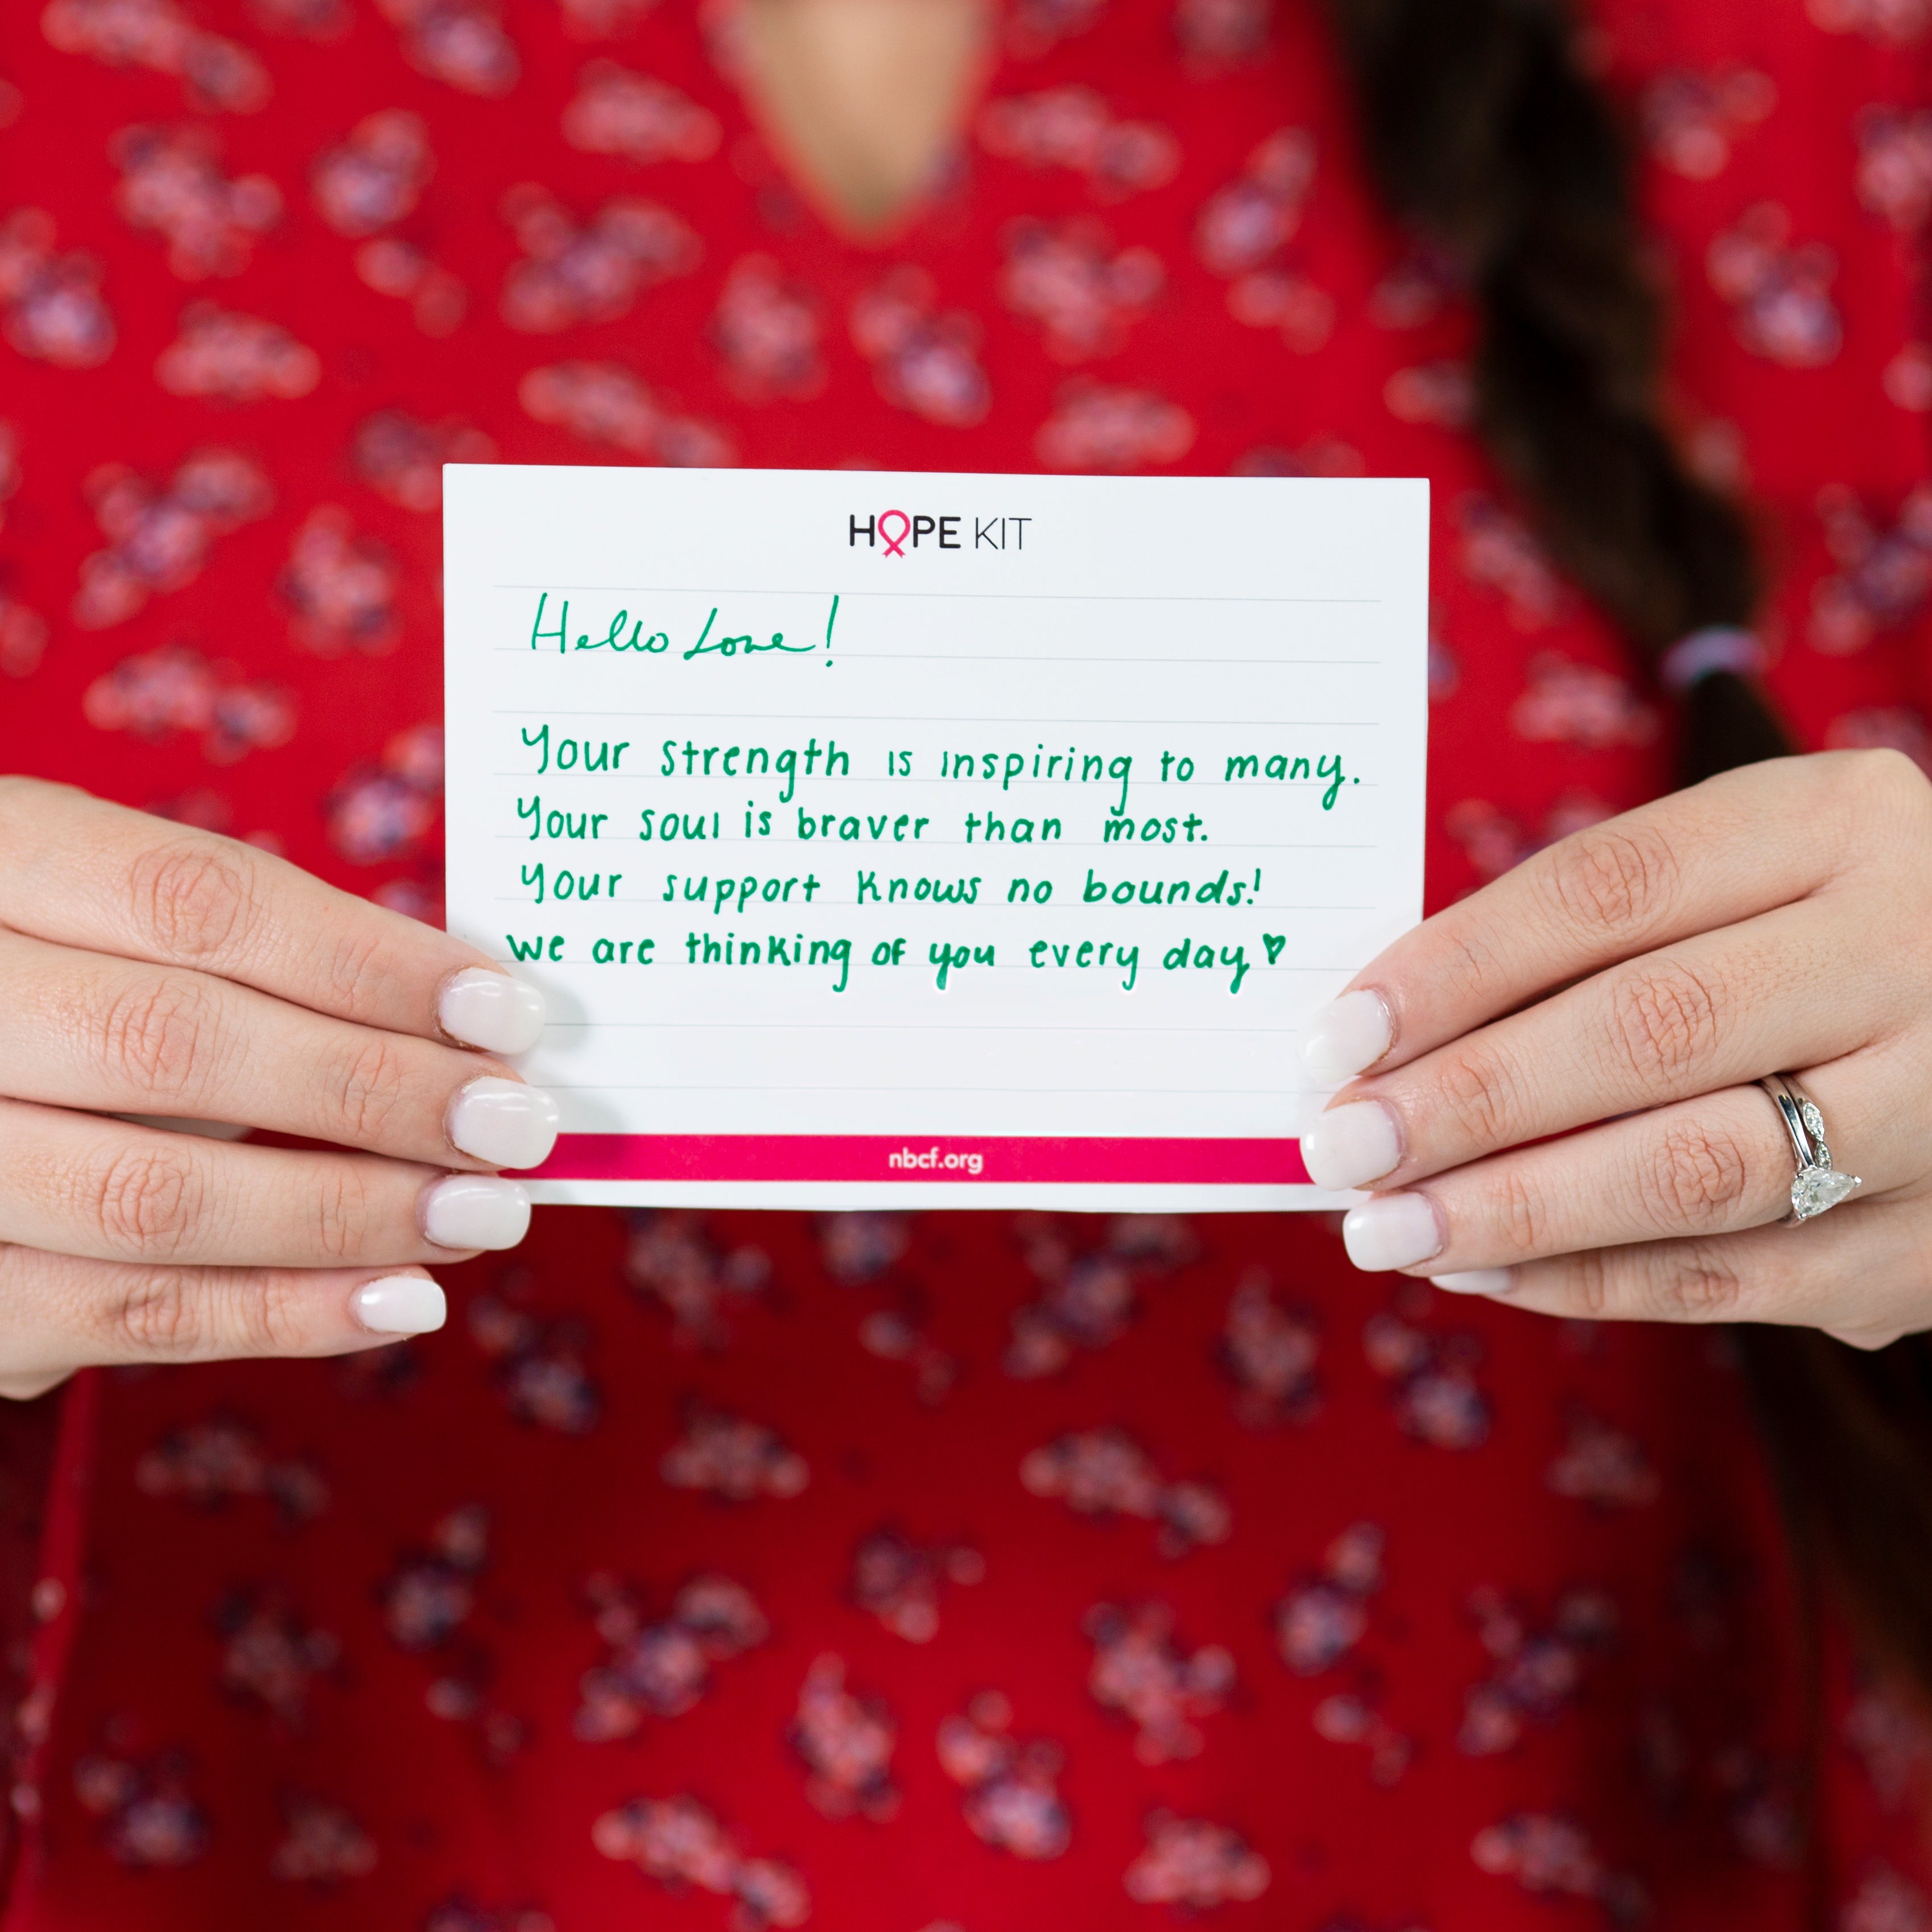 HOPE KIT
Hello Love!
Your strength is inspiring to many.
Your soul is braver than most.
Your support knows no bounds!
we are thinking of you every day ♥
nbcf.org